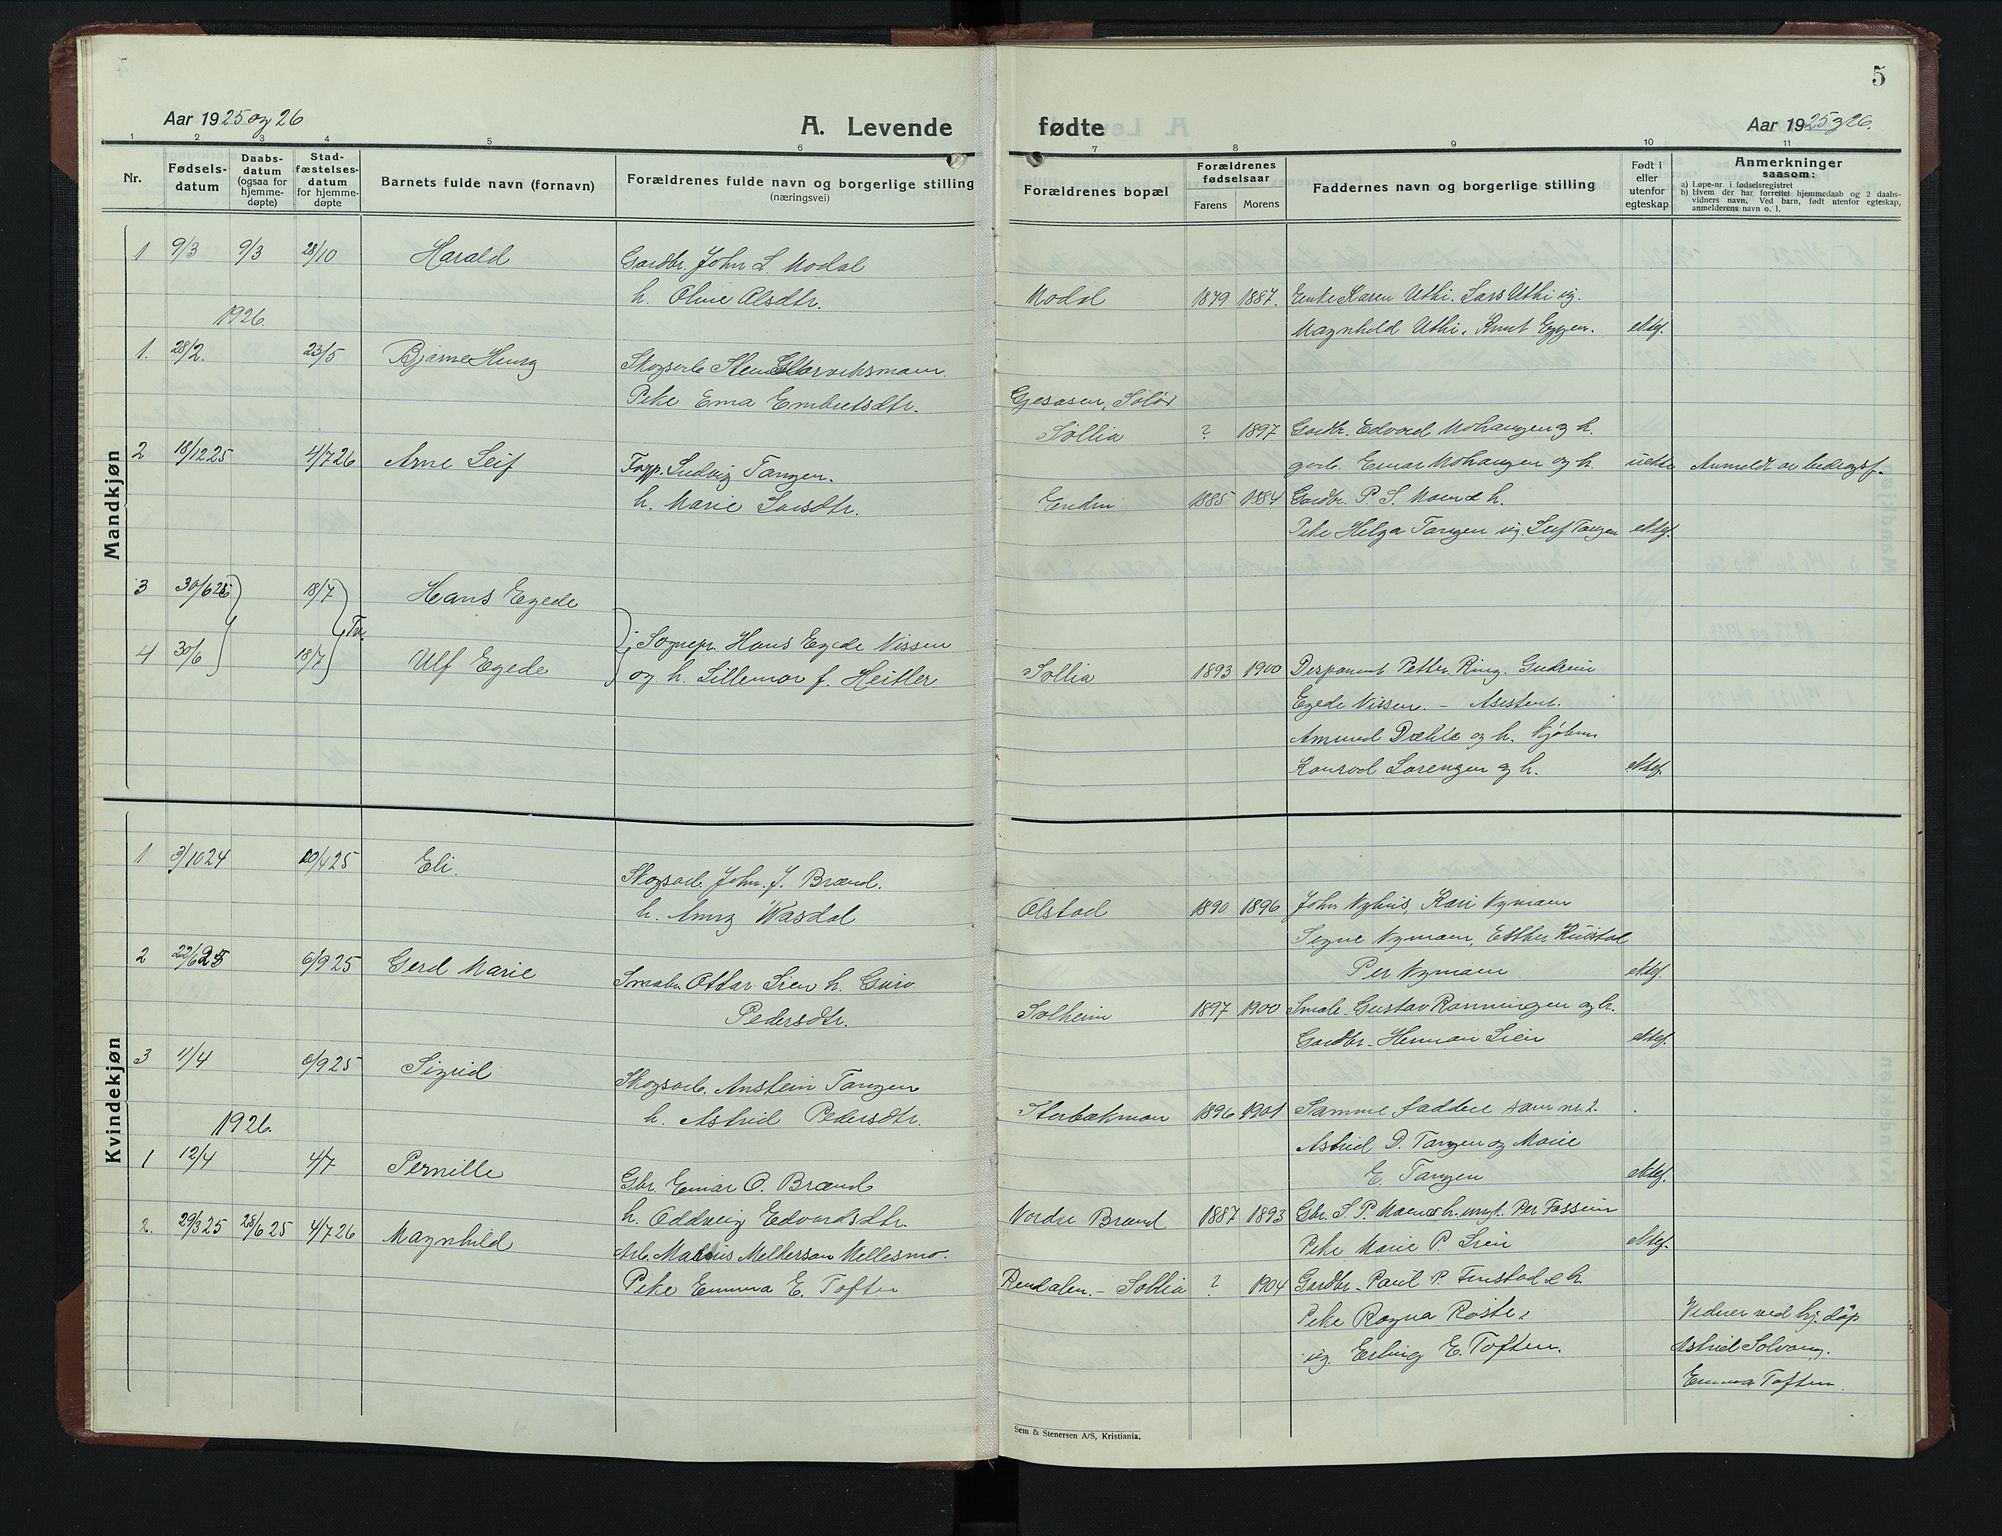 Aar 1925 og 26
A. Levende
1 2 3 4 5 6
Nr.
Fødsels-
datum
Daabs-
datum
(ogsaa for
hjemme-
døpte)
Stad-
fæstelses-
datum
for hjemme-
døpte
Barnets fulde navn (fornavn)
Forældrenes fulde navn og borgerlige stilling
(næringsvei)
Mandkjøn
1 9/3 9/3 28/10 Harald Gardbr. John L. Modal
h. Oline Olsdtr.
1926.
1. 28/2. 23/5 Bjarne
Pike Erna Embretsdtr.
2 18/12 25 4/7 26 Arne Leif Ludvig Tangen.
h. Marie Larsdtr.
3 30/6 18/7 Hans Egede
4 30/6 18/7 Ulf Egede Sognepr. Hans Egede Nissen
og h. Lillemor f. Heitler
Kvindekjøn
1 3/10 24 25 Eli. Skogsarb. John. J. Brænd.
h. Anny Wasdal
2 22/6 25 6/9 25 Gerd Marie Smabr. Ottar Lien h. Guro
Pedersdtr.
3 4/4 6/9 25 Sigrid Skogsarb. Anstein Tangen
h. Astrid Pedersdtr.
1926.
1 12/4 4/7 Pernille Gbr. Einar O. Brænd
h. Oddveig Edvardsdtr.
2. 29/3 25 28/6 25 4/7 26 Magnhild Arb. Melkersan Mellesmo.
Pike Emma E. Toften
5
fødte
Aar 1925 og 26.
7 8 9 10 11
Forældrenes bopæl
Forældrenes
fødselsaar
Farens Morens
Faddernes navn og borgerlige stilling
Født i
eller
utenfor
egteskap
Anmerkninger
saasom:
a) Løpe-nr. i fødselsregistret
b) Hvem der har forrettet hjemmedaab og 2 daabs-
vidners navn. Ved barn, født utenfor egteskap,
anmelderens navn o. l.
Modal 1879 1887. Enke Karen Uthi. Lars Uthi ug.
Magnhild Uthi. Knut Eggen. ektef.
Gjesåsen, Solør
Sollia ? 1897 Gardbr. Edvard Mohaugen og h.
Einar Mohaugen og h. uekte Anmeldt av bidragsf.
Endrin 1885 1884 Gardbr. P. S. Moen & h.
Pike Helga Tangen ug. Leif Tangen ektef.
Sollia 1893 1900 Disponent Petter Ring. Gudrun
Egede Nissen. - Asistent.
Amund Dæhle og h. Kjøbm.
Konrad Lorengen og h. ektef.
Olstad 1890 1896 John Nyhus, Kari Nyman
Signe Nyman, Esther
Per Nyman ektef.
Solheim 1897 1900 Gustav Rønningen og h.
Gardbr. Herman Lien ektef.
1896 1901 Samme faddere som nr. 2.
Astrid D. Tangen og Marie
E. Tangen ektef.
Nordre Brænd 1887 1893 Gbr. S. P. Moen & h. ungk. Per Fossum
Pike Marie P. Lien ektef.
Rendalen. - Sollia ? 1904 Gardbr. Paul P. Finstad & h.
Pike Ragna Røste.
ug. Erling E. Toften.
Vidner ved hj. dåp
Astrid Solvang.
Emma Toften.
Mandkjøn
Kvindekjøn
Sem & Stenersen A/S, Kristiania.